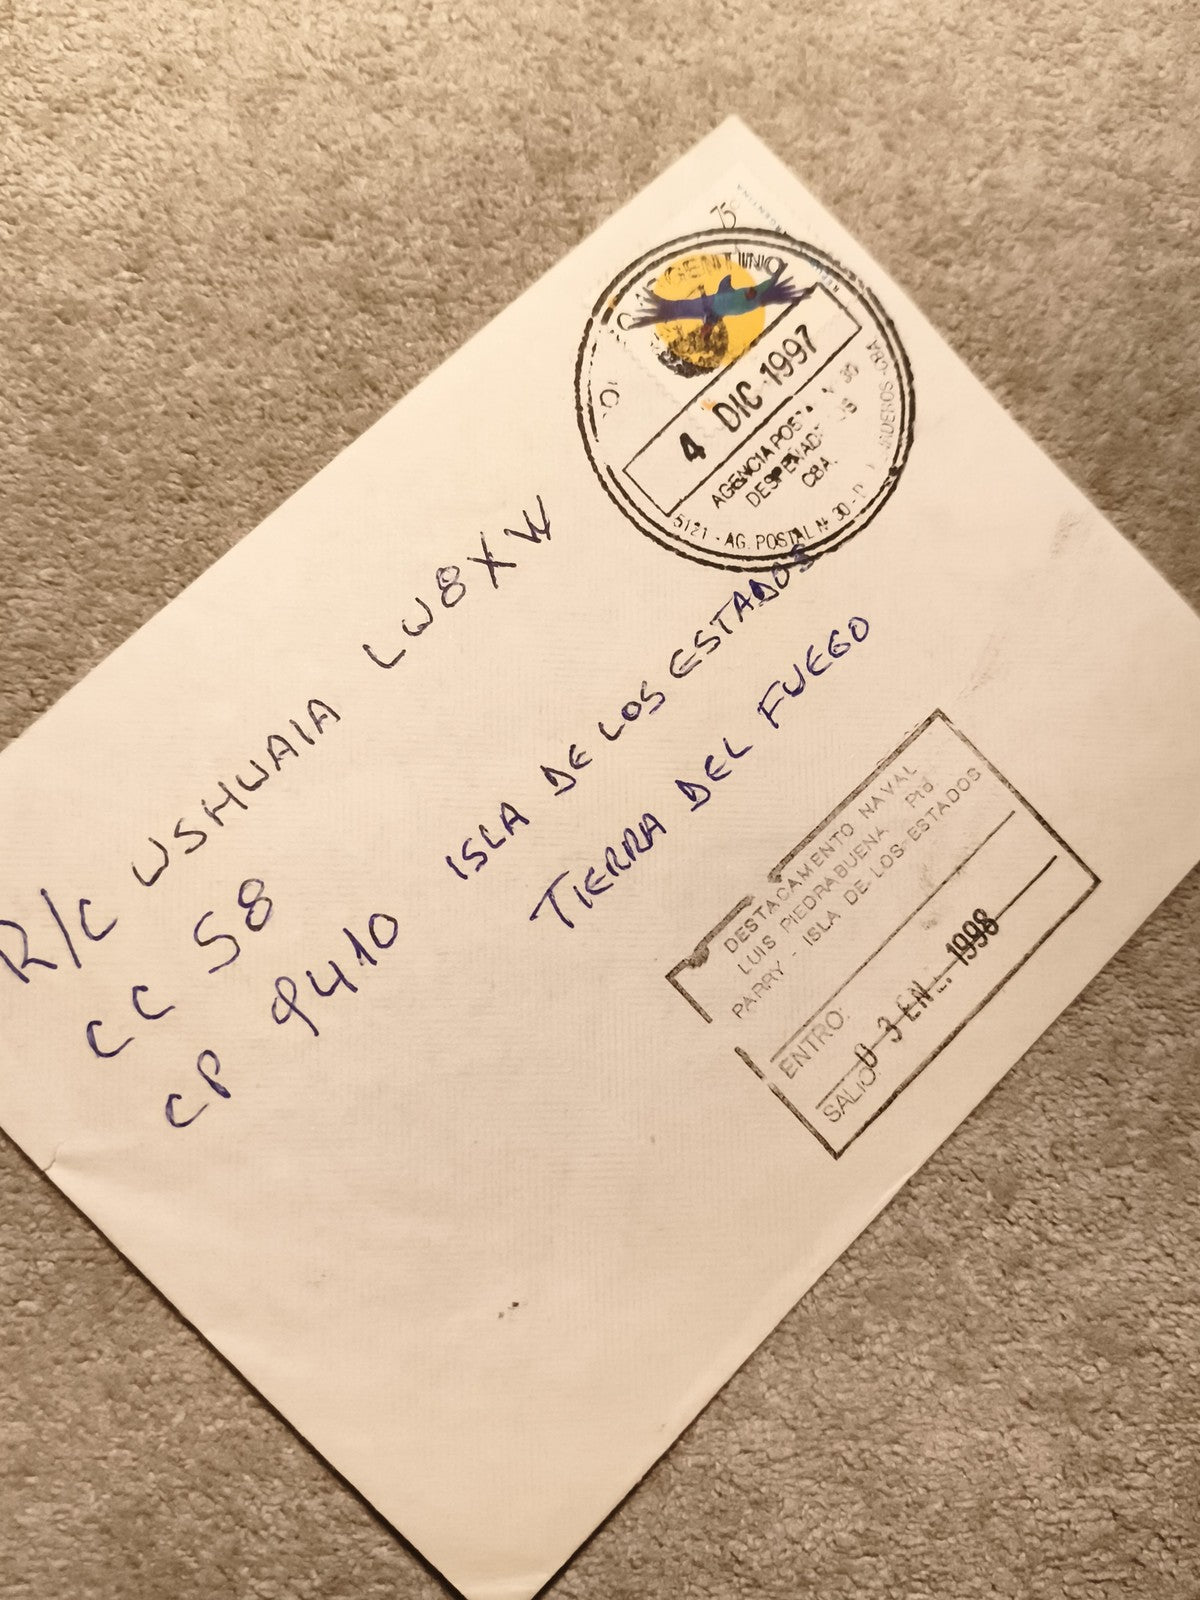 75c
ARGENTINA
ARGENTINO
4 DIC 1997
AGENCIA POSTA N 30
CBA.
5121 - AG. POSTAL Nº 30 -
R/C USHUAIA LW8XW
CC 58
CP 9410 ISLA DE LOS ESTADOS
TIERRA DEL FUEGO
DESTACAMENTO NAVAL
LUIS PIEDRABUENA Pto
PARRY - ISLA DE LOS ESTADOS
ENTRO:
SALIO 03 ENE. 1998